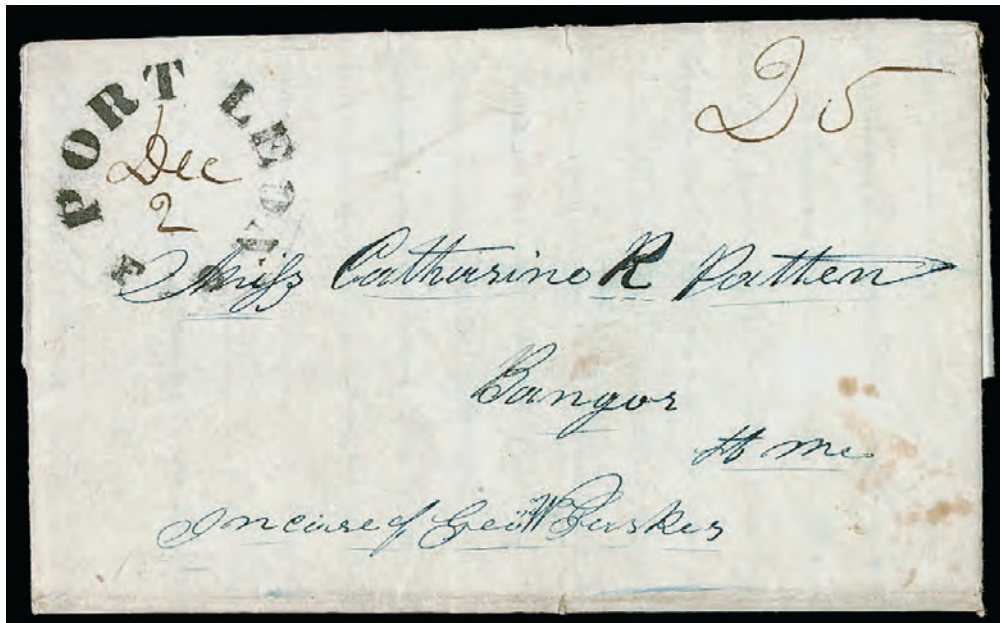 PORT LEON
Dec
2
25
Miss Catharine R Patten
Bangor
Me
In care of Geo W Parker